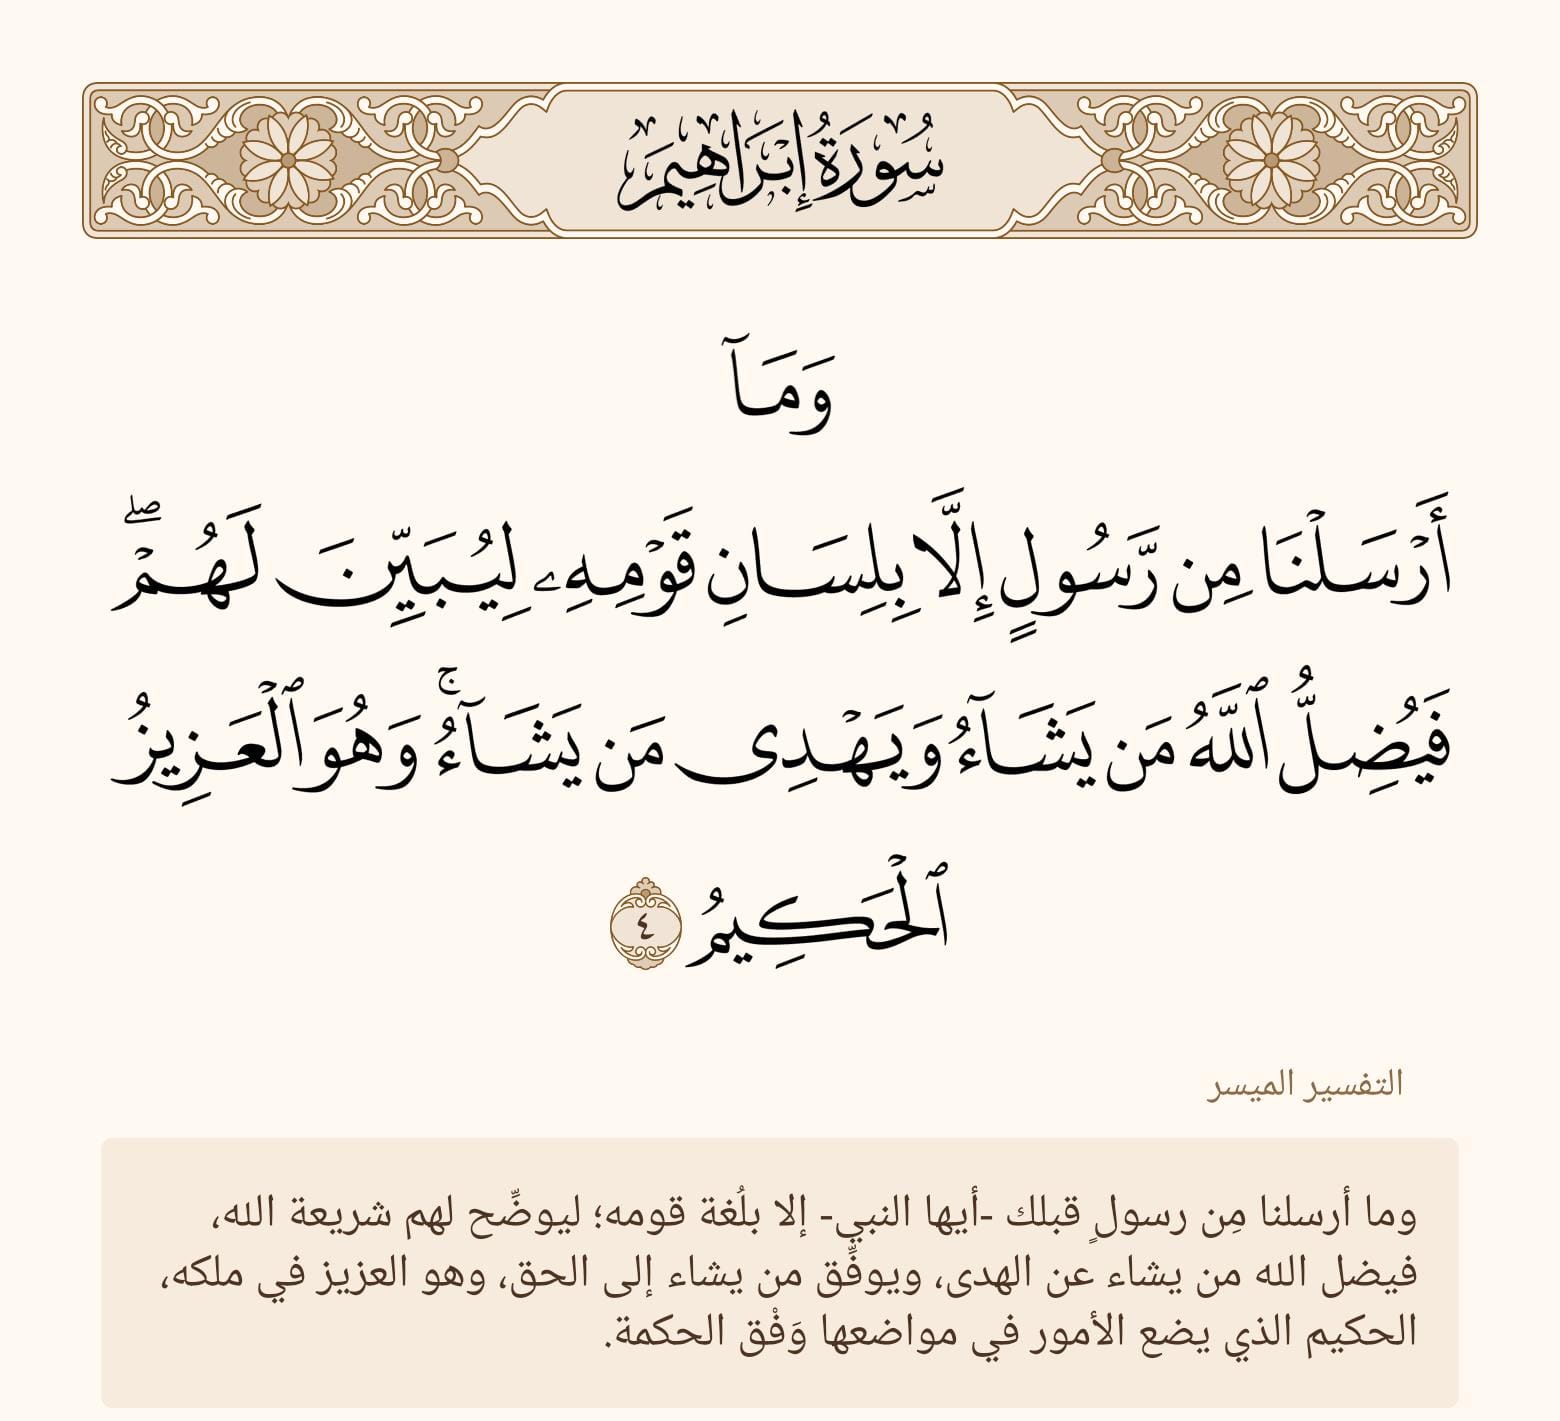 سُورَةُ إِبْرَاهِيمَ
وَمَآ
أَرۡسَلۡنَا مِن رَّسُولٍ إِلَّا بِلِسَانِ قَوۡمِهِۦ لِيُبَيِّنَ لَهُمۡۖ
فَيُضِلُّ ٱللَّهُ مَن يَشَآءُ وَيَهۡدِي مَن يَشَآءُۚ وَهُوَ ٱلۡعَزِيزُ
ٱلۡحَكِيمُ ٤
التفسير الميسر
وما أرسلنا مِن رسولٍ قبلك -أيها النبي- إلا بلُغة قومه؛ ليوضِّح لهم شريعة الله،
فيضل الله من يشاء عن الهدى، ويوفِّق من يشاء إلى الحق، وهو العزيز في ملكه،
الحكيم الذي يضع الأمور في مواضعها وَفْق الحكمة.